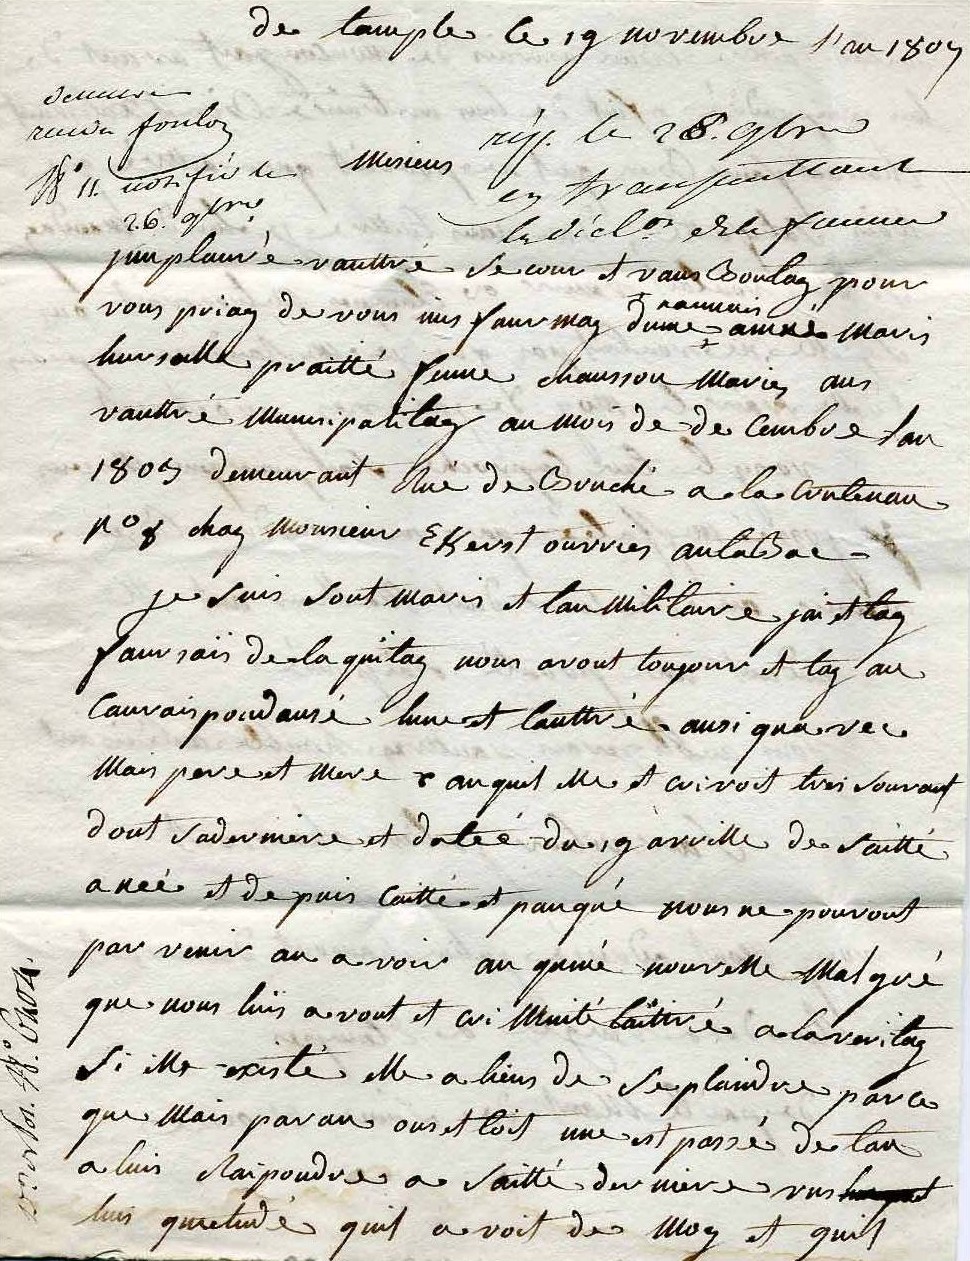 de tample le 19 novembre l'an 1807
demeure
rue du foulon
No 11. notifié le
26. 9bre
rép. le 28. 9bre
en transmettant
la décl.on de la femme
Mesieus
jinplauré vauttré secour et vaus Boulag pour
vous priag de vousinsfaurmag dune nommais aimné Maris
hurselle praitté fenme chausson Maries aus
vauttré Munisipalitag au Mois de de Cembre lan
1807 demeurant Rue de Bruche a la
No 8 chag Monsieur ourries aulaBac
je suis sont Maris et tau Militaire jai etag
faursais de la quitag nous avont toujour et tag au
Cauraispondansé lune et lauttré ausi quavec
Mais pere et Mere auquil Me et crivoit tres souvant
dont sa derniere et datée du 19 avrille de saitté
aneé et de puis Caitté et pauqué nous ne pouvont
par venir au avoir auquné nouvelle Malgré
que nous luis avont et cri Muité laittré a la veritag
Si elle existé elle a liens de se plaindre parce
que Mais paran ons et loit une et passé de tau
a luis Raipondre a saitté derniere vus
luis quietudé quil avoit de Moy et quils
No. 6404.